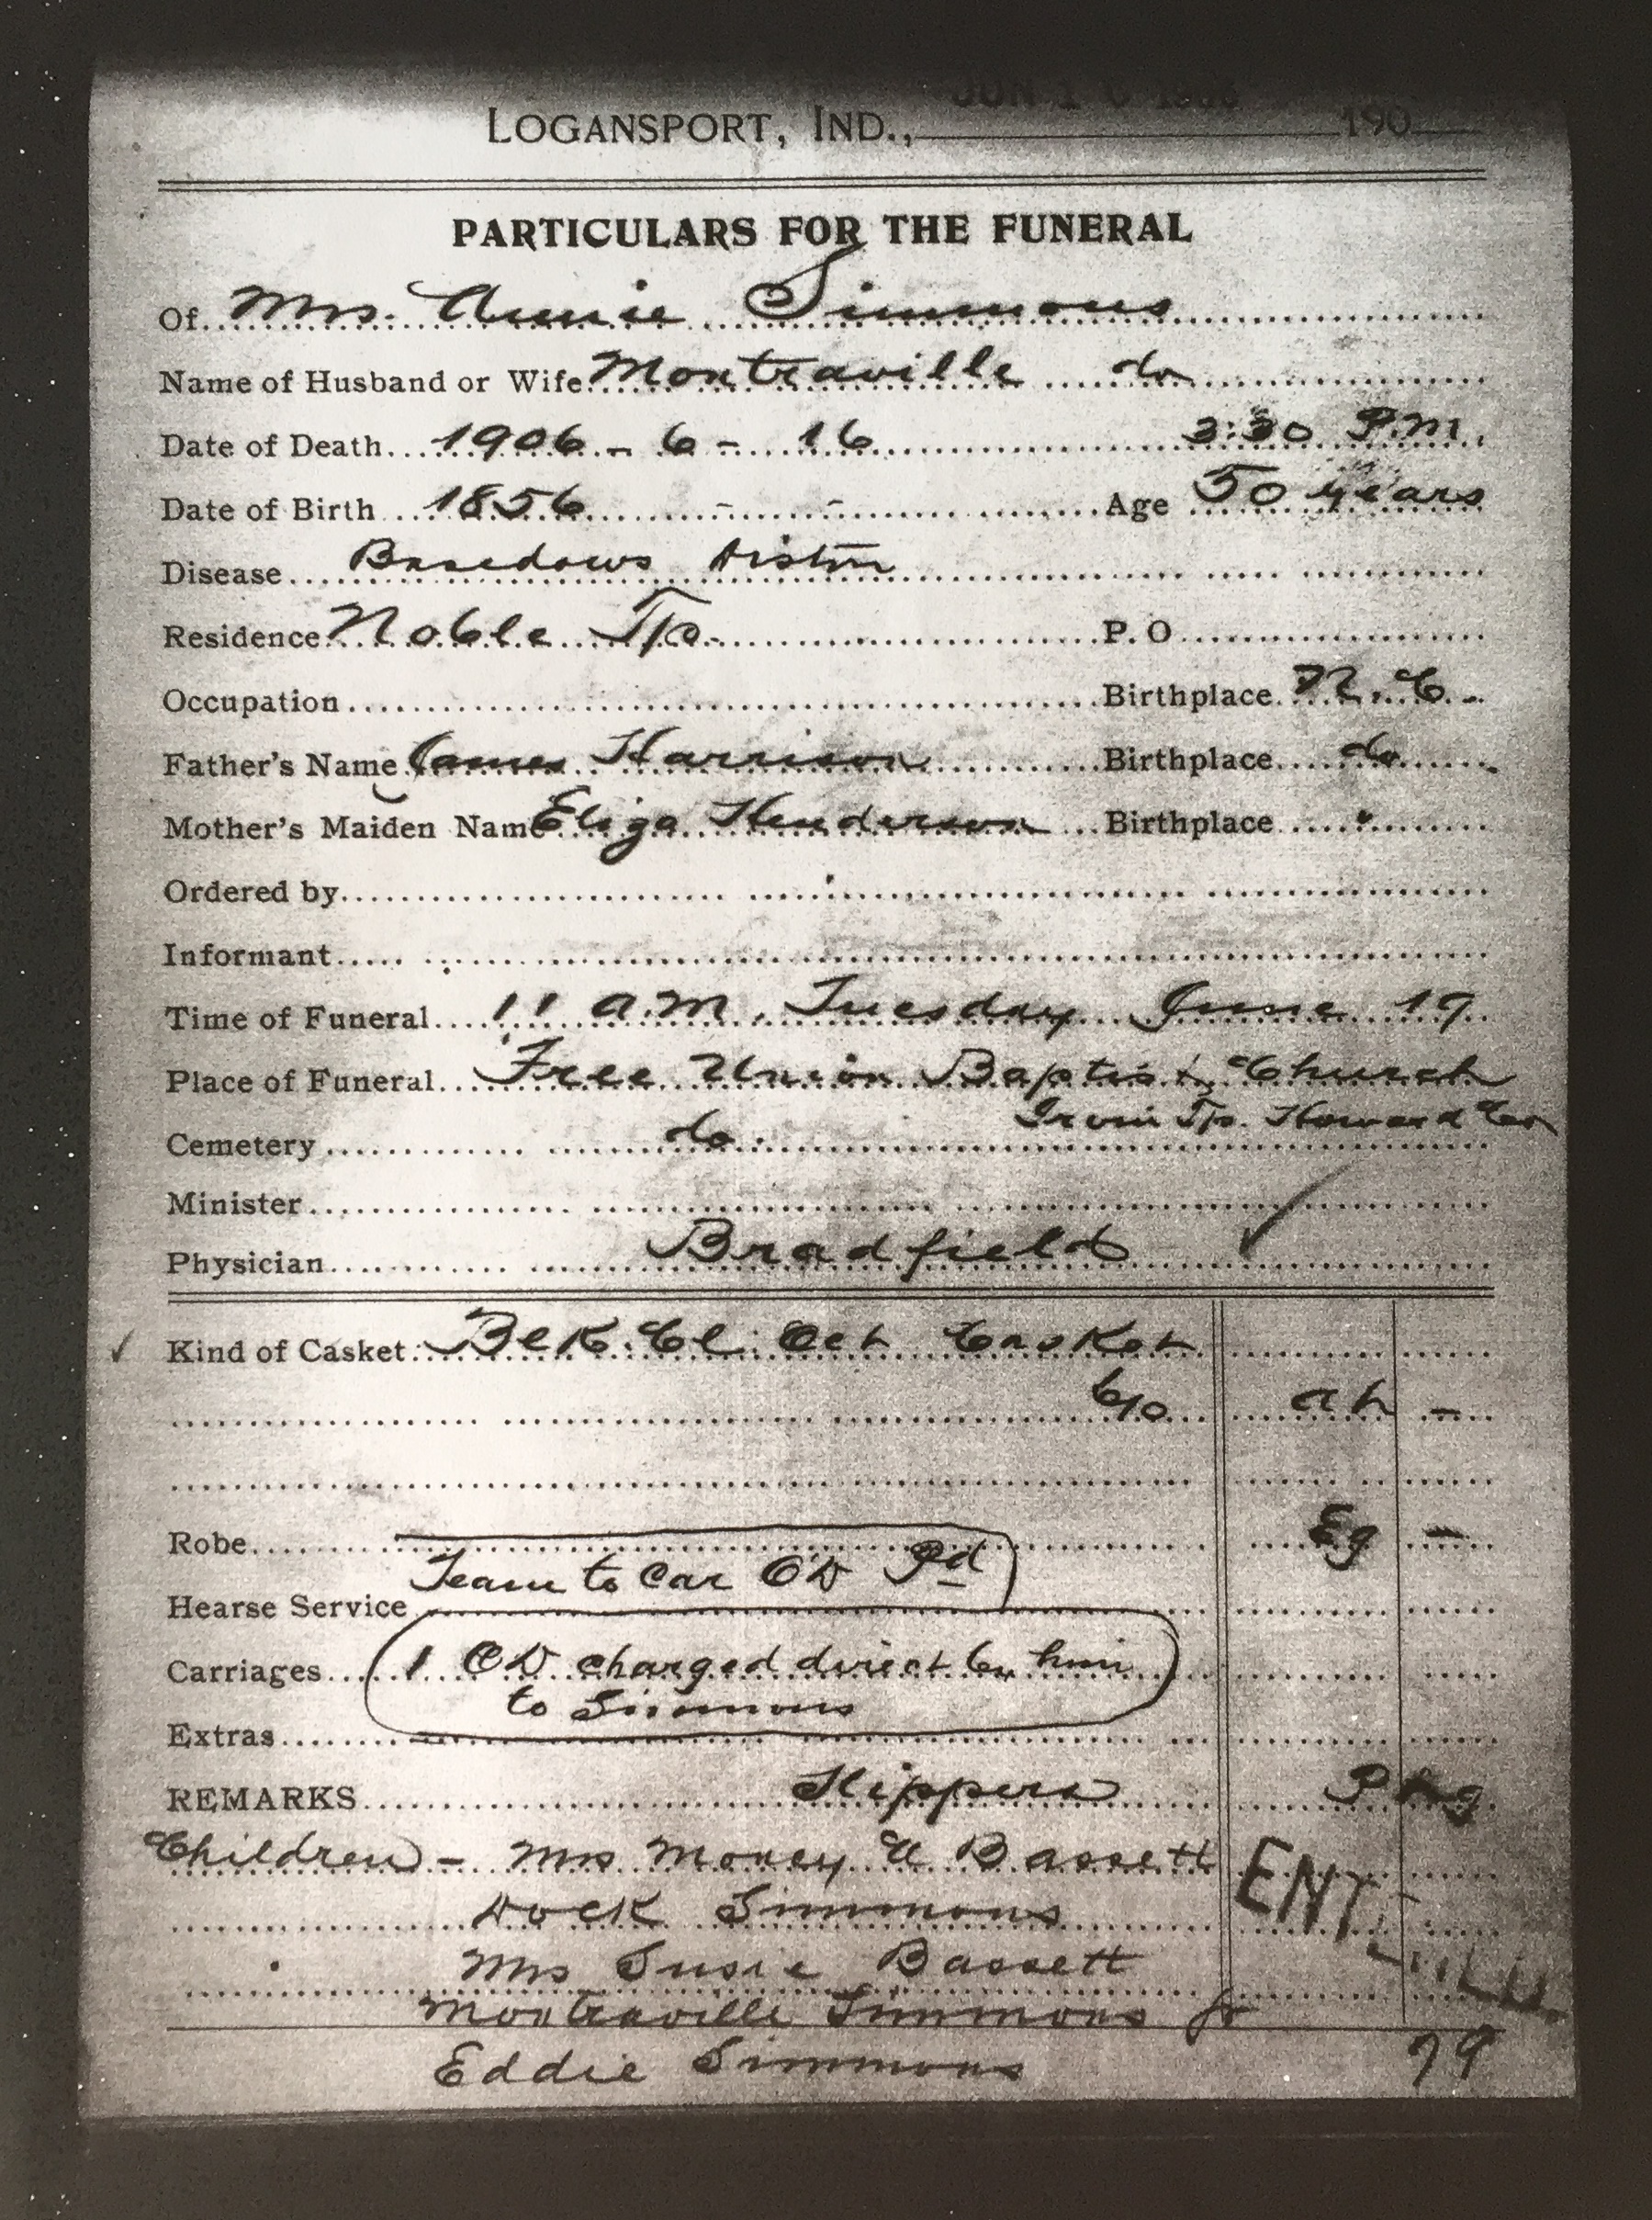 JUN 16 1906
LOGANSPORT, IND., 190
PARTICULARS FOR THE FUNERAL
Of Mrs. Annie Simmons
Name of Husband or Wife Montraville do
Date of Death 1906 - 6 - 16 3:30 P.M.
Date of Birth 1856 - - Age 50 years
Disease Basedows
Residence Noble Tp. P. O
Occupation Birthplace N. C.
Father's Name James Harrison Birthplace do
Mother's Maiden Name Eliza Henderson Birthplace "
Ordered by
Informant
Time of Funeral 11 a.m. Tuesday June 19
Place of Funeral Free Union Baptist Church
Irvin Tp. Howard Co
Cemetery do.
Minister
Physician Bradfield
Kind of Casket Blk. Cl. Oct Casket
6/0 ah -
Robe Eg -
Team to Car OD Pd
Hearse Service
Carriages 1 OD charged direct by him
to Simmons
Extras
REMARKS Slippers P
Children - Mrs Moncy E Bassett
Dock Simmons
Mrs Susie Bassett
Montraville Simmons Jr
Eddie Simmons 79